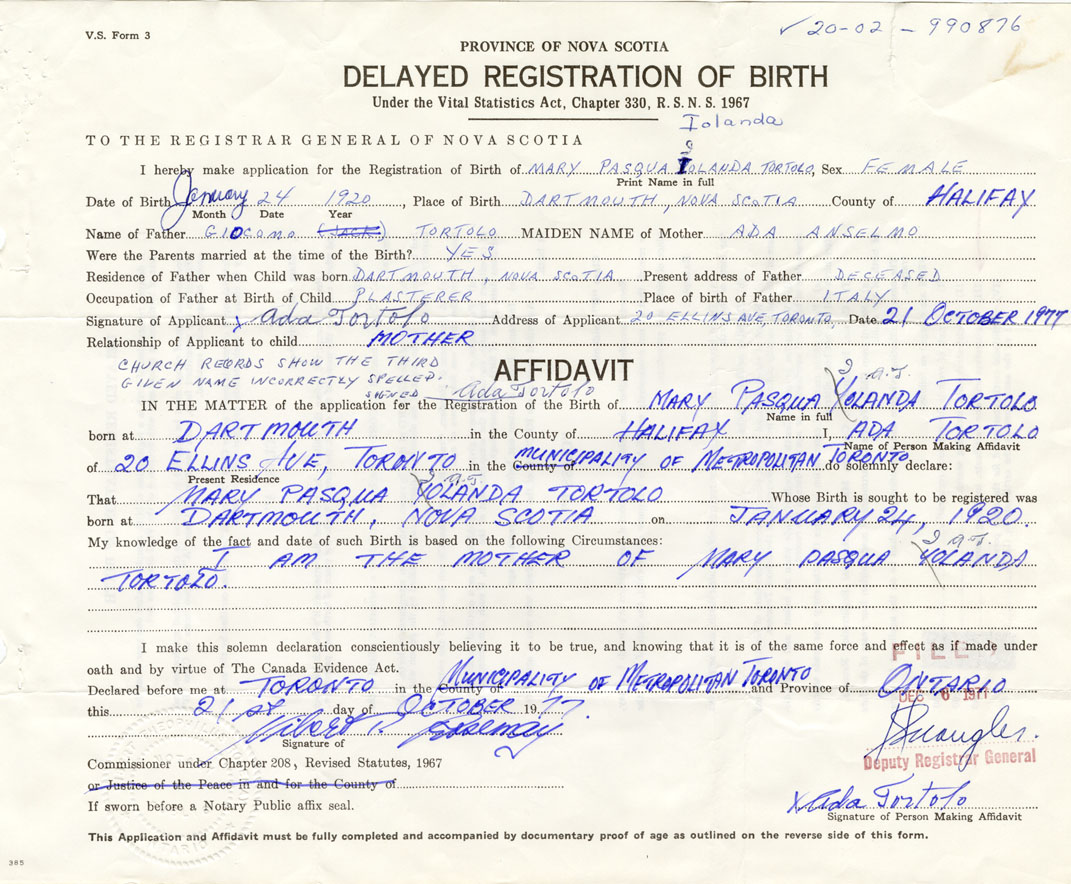 V.S. Form 3
✓20-02-990876
PROVINCE OF NOVA SCOTIA
DELAYED REGISTRATION OF BIRTH
Under the Vital Statistics Act, Chapter 330, R.S.N.S. 1967
Iolanda
TO THE REGISTRAR GENERAL OF NOVA SCOTIA
I hereby make application for the Registration of Birth of MARY PASQUA IOLANDA TORTOLO, Sex FEMALE
Print Name in full
Date of Birth January 24 1920, Place of Birth DARTMOUTH, NOVA SCOTIA County of HALIFAX
Month Date Year
Name of Father GIOCOMO (JACK) TORTOLO MAIDEN NAME of Mother ADA ANSELMO
Were the Parents married at the time of the Birth? YES
Residence of Father when Child was born DARTMOUTH, NOVA SCOTIA Present address of Father DECEASED
Occupation of Father at Birth of Child PLASTERER Place of birth of Father ITALY
Signature of Applicant x Ada Tortolo Address of Applicant 20 ELLINS AVE, TORONTO, Date 21 OCTOBER 1977
Relationship of Applicant to child MOTHER
CHURCH RECORDS SHOW THE THIRD
GIVEN NAME INCORRECTLY SPELLED.
SIGNED Ada Tortolo
AFFIDAVIT
I A.T.
IN THE MATTER of the application for the Registration of the Birth of MARY PASQUA YOLANDA TORTOLO
Name in full
born at DARTMOUTH in the County of HALIFAX I ADA TORTOLO
Name of Person Making Affidavit
of 20 ELLINS AVE, TORONTO in the County of MUNICIPALITY OF METROPOLITAN TORONTO do solemnly declare:
Present Residence
A.T.
That MARY PASQUA YOLANDA TORTOLO Whose Birth is sought to be registered was
born at DARTMOUTH, NOVA SCOTIA on JANUARY 24, 1920.
My knowledge of the fact and date of such Birth is based on the following Circumstances:
I A.T.
I AM THE MOTHER OF MARY PASQUA YOLANDA
TORTOLO.
I make this solemn declaration conscientiously believing it to be true, and knowing that it is of the same force and effect as if made under
oath and by virtue of The Canada Evidence Act.
FILED
Declared before me at TORONTO in the County of MUNICIPALITY OF METROPOLITAN TORONTO and Province of ONTARIO
DEC 6 1977
this 21st day of OCTOBER 1977.
Signature of
Deputy Registrar General
Commissioner under Chapter 208, Revised Statutes, 1967
or Justice of the Peace in and for the County of
If sworn before a Notary Public affix seal.
x Ada Tortolo
Signature of Person Making Affidavit
This Application and Affidavit must be fully completed and accompanied by documentary proof of age as outlined on the reverse side of this form.
385